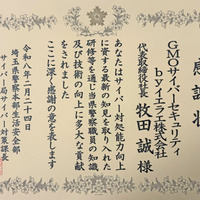 感謝状
GMOサイバーセキュリティ
byイエラエ株式会社
代表取締役社長 牧田 誠 様
あなたはサイバー対処能力向上
に資する最新の知見を取り入れた
研修等を通じ当県警察職員の知識
及び技術の向上に多大な貢献
をされました
ここに深く感謝の意を表します
月二十四日
埼玉県警察本部生活安全部
サイバー局サイバー対策課長